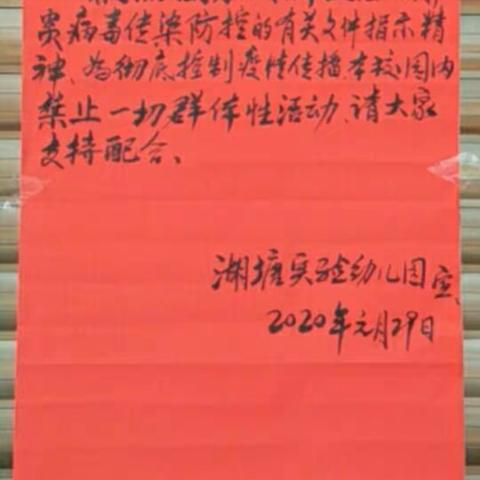 炎病毒传染防控的有关文件指示精
神、为彻底控制疫情传播本校园内
禁止一切群体性活动、请大家
支持配合、
湖塘实验幼儿园宣、
2020年元月29日